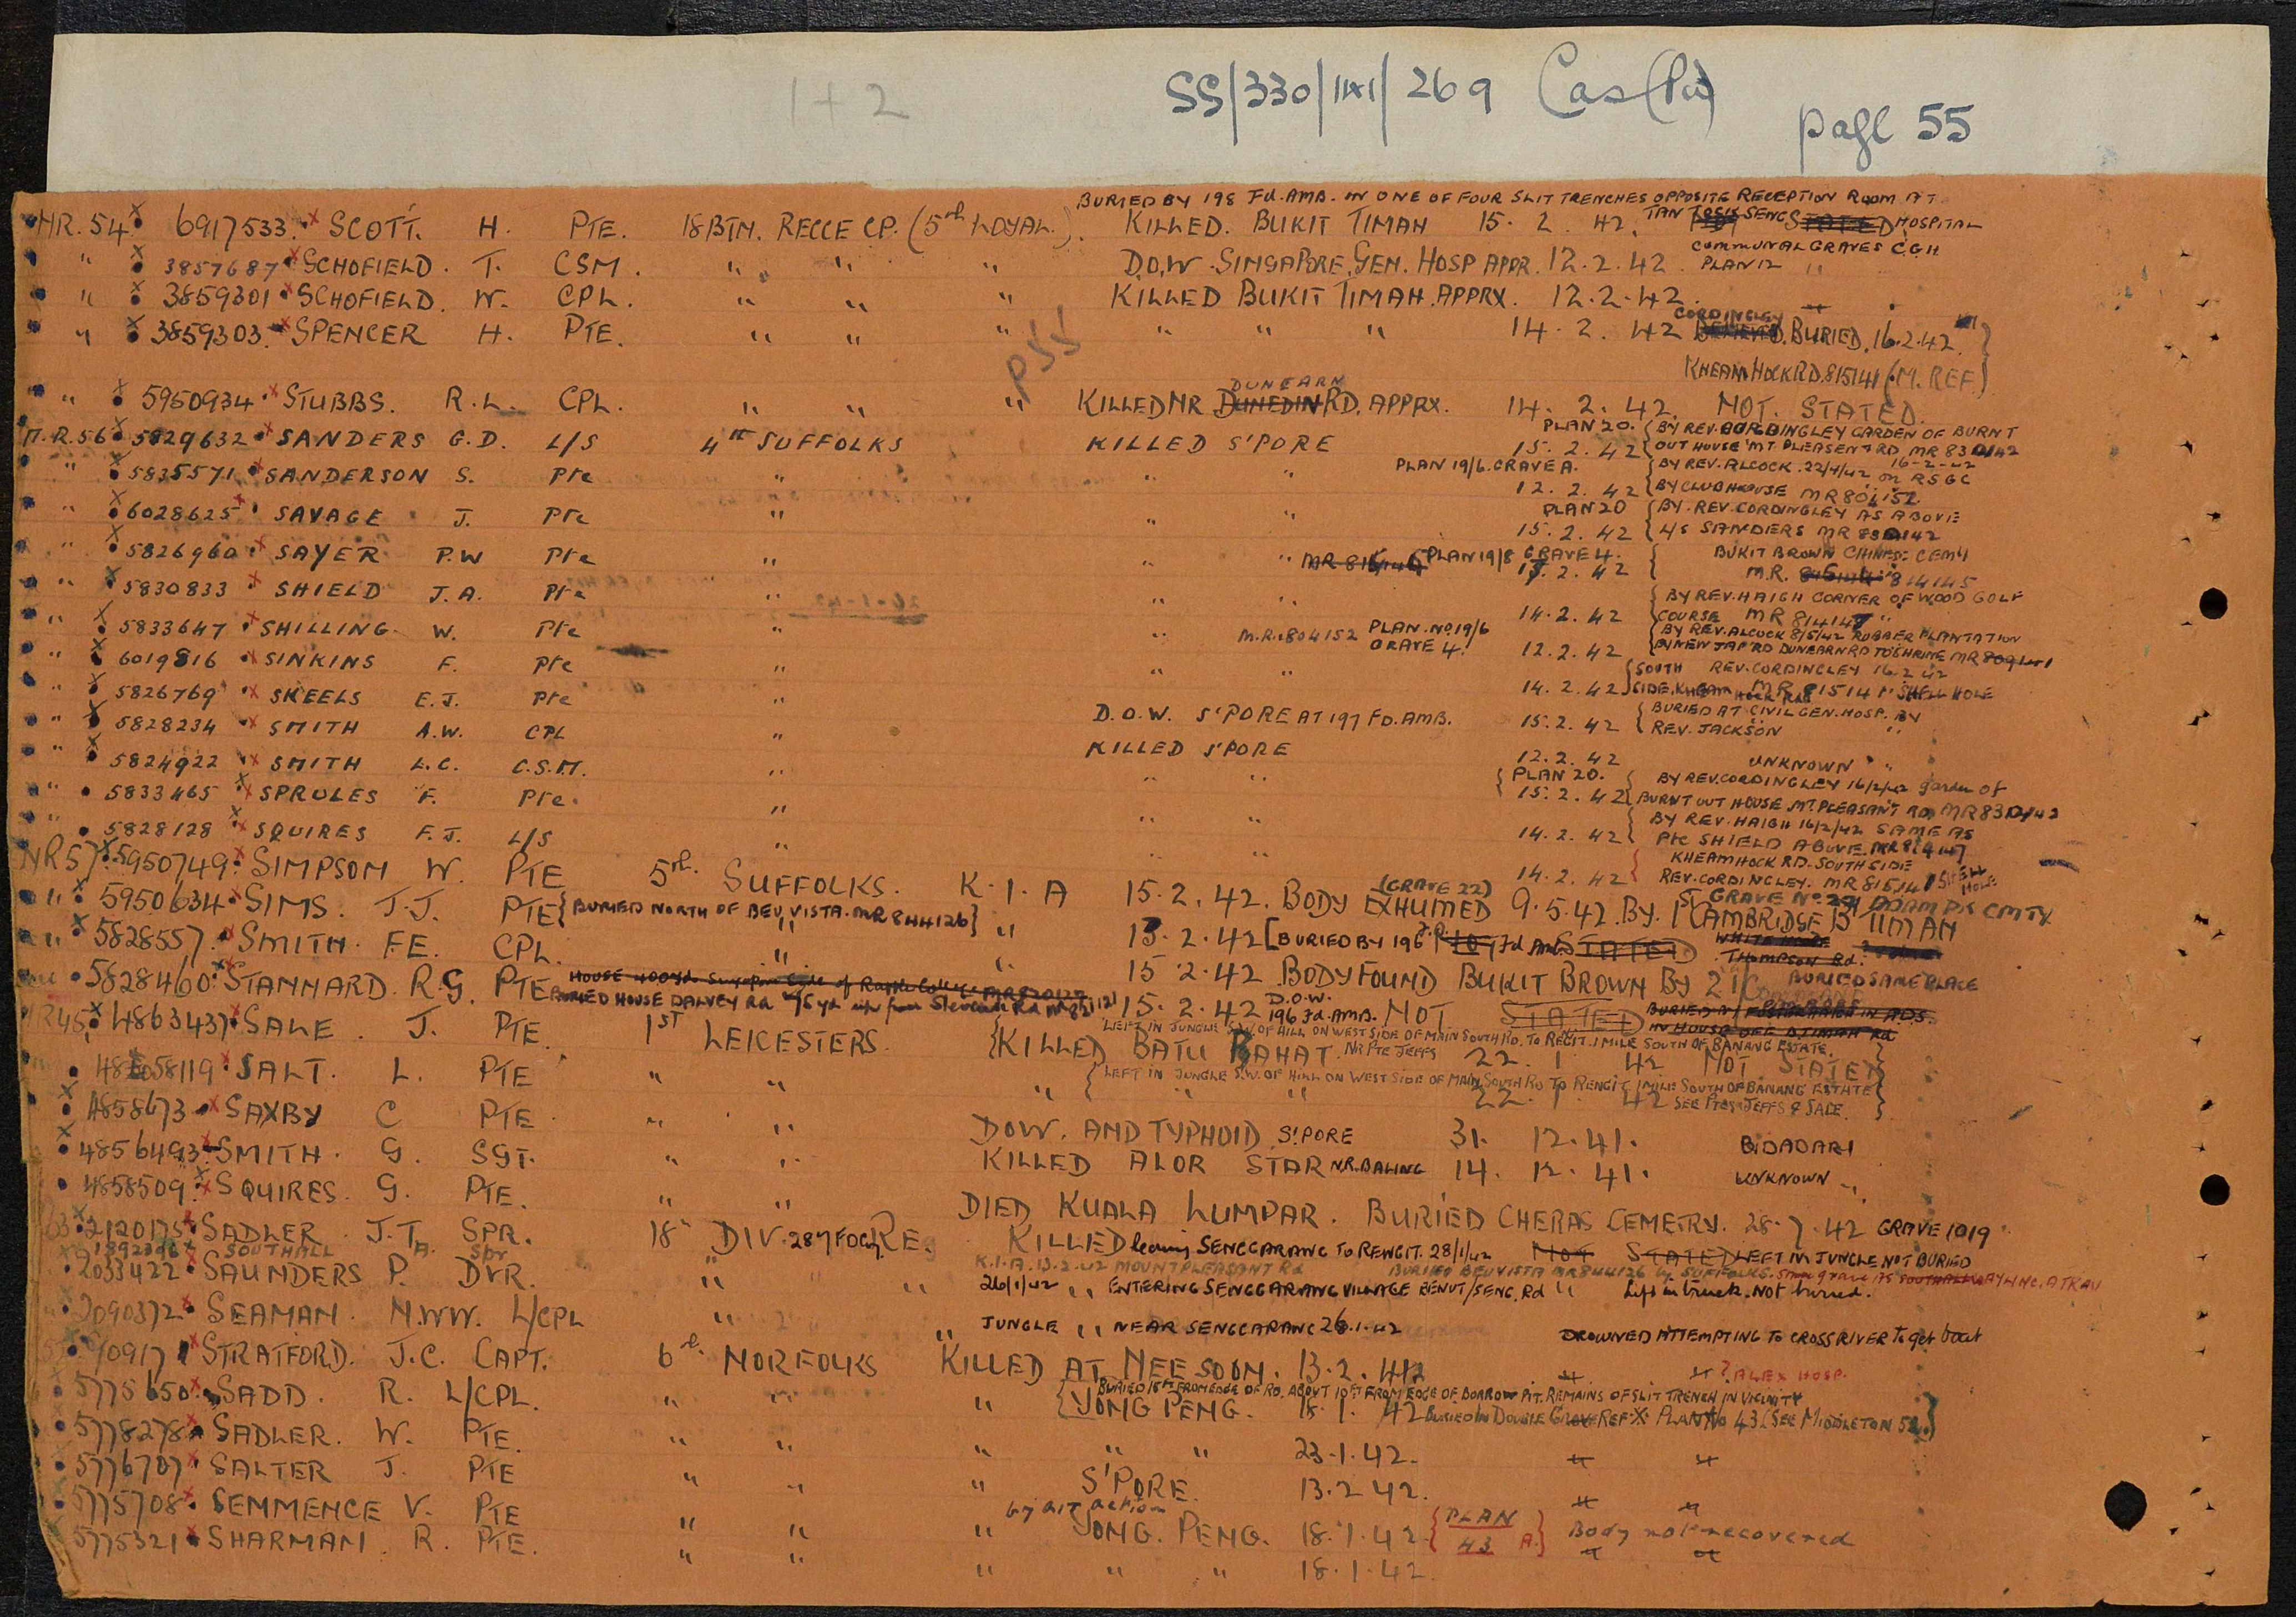 1 + 2
SS/330/141/269 Cas(Pa)
page 55
BURIED BY 198 Fd. AMB. IN ONE OF FOUR SLIT TRENCHES OPPOSITE RECEPTION ROOM AT
NR. 54 6917533 SCOTT. H. PTE. 18 BTN. RECCE CP. (5th LOYAL.). KILLED. BUKIT TIMAH 15. 2. 42. TAN TOCK SENG STATED HOSPITAL
COMMUNAL GRAVES C.G.H
" 3857687 SCHOFIELD. T. CSM. " " " D.O.W. SINGAPORE. GEN. HOSP APPR. 12.2.42. PLAN 12 "
" 3859301 SCHOFIELD. W. CPL. " " " KILLED BUKIT TIMAH. APPRX. 12.2.42. "
CORDINGLEY
" 3859303 SPENCER H. PTE. " " " " " " 14.2.42 BURIED. 16.2.42
P55
KHEAM HOCK RD. 815141 (M. REF.)
DUNEARN
" 5950934 STUBBS. R.L. CPL. " " " KILLED NR DUNEDIN RD. APPRX. 14. 2. 42. NOT. STATED.
PLAN 20. BY REV. CORDINGLEY GARDEN OF BURNT
N.R.56 5829632 SANDERS G.D. L/S 4th SUFFOLKS KILLED S'PORE 15.2.42 OUT HOUSE MT PLEASENT RD MR 830142
16-2-42
PLAN 19/6. GRAVE A. BY REV. ALCOCK. 22/4/42 on RSGC
" 5835571 SANDERSON S. Pte " " " 12.2.42 BY CLUBHOUSE MR 804152
PLAN 20 BY. REV. CORDINGLEY AS ABOVE
" 6028625 SAVAGE J. Pte " " " 15.2.42 L/S SANDERS MR 830142
PLAN 19/8 GRAVE 4. BUKIT BROWN CHINESE CEMY
" 5826960 SAYER P.W Pte " " " MR 816146 2.42 M.R. 814145
BY REV. HAIGH CORNER OF WOOD GOLF
" 5830833 SHIELD J.A. Pte " " " 14.2.42 COURSE MR 814147
PLAN. NO. 19/6 BY REV. ALCOCK 8/5/42 RUBBER PLANTATION
" 5833647 SHILLING. W. Pte " " M.R. 804152 GRAVE 4. 12.2.42 BY NEW JAP RD DUNEARN RD TO SHRINE MR
SOUTH REV. CORDINGLEY 16.2.42
" 6019816 SINKINS F. Pte " " " 14.2.42 SIDE. KHEAM HOCK RD MR 815141 SHELL HOLE
BURIED AT CIVIL GEN. HOSP. BY
" 5826769 SKEELS E.J. Pte " D.O.W. S'PORE AT 197 FD. AMB. 15.2.42 REV. JACKSON
" 5828234 SMITH A.W. CPL " KILLED S'PORE 12.2.42 UNKNOWN "
PLAN 20. BY REV. CORDINGLEY 16/2/42 garden of
" 5824922 SMITH L.C. C.S.M. " " " 15.2.42 BURNT OUT HOUSE MT. PLEASANT RD MR 830142
BY REV. HAIGH 16/2/42 SAME AS
" 5833465 SPRULES F. Pte. " " " 14.2.42 Pte SHIELD ABOVE. MR 814147
KHEAM HOCK RD. SOUTH SIDE
" 5828128 SQUIRES F.J. L/S " " " 14.2.42 REV. CORDINGLEY. MR 815141 SHELL HOLE
(GRAVE 22) GRAVE No. 22 ADAM PK CMTY
NR57 5950749 SIMPSON W. PTE 5th. SUFFOLKS. K.I.A 15.2.42. BODY EXHUMED 9.5.42. BY. 1 CAMBRIDGE B TIMAH
" 5950634 SIMS. J.J. PTE {BURIED NORTH OF BEU VISTA. MR 844126} " 13.2.42 [BURIED BY 196 Fd Amb. STATED WHITE HOUSE THOMPSON Rd.
" 5828557 SMITH. F.E. CPL. " " 15.2.42 BODY FOUND BUKIT BROWN BY 2 I/C BURIED SAME PLACE
HOUSE 400yd. Singapore Side of Raffles College MR 820127
5828460 STANNARD. R.G. PTE BURIED HOUSE DALVEY Rd 75 yd up from Stevens Rd 15.2.42 D.O.W. 196 Fd. AMB. NOT STATED BURIED IN IN ADS. IN HOUSE OFF B TIMAH Rd
LEFT IN JUNGLE S.W. OF HILL ON WEST SIDE OF MAIN SOUTH RD. TO REGIT. 1 MILE SOUTH OF BANANG ESTATE.
NR45 4863437 SALE. J. PTE. 1ST LEICESTERS. KILLED BATU PAHAT. NR Pte JEFFS 22. 1. 42 NOT STATED
LEFT IN JUNGLE S.W. OF HILL ON WEST SIDE OF MAIN SOUTH RD TO RENGIT 1 MILE SOUTH OF BANANG ESTATE
58119 SALT. L. PTE " " " " " 22. 1. 42 SEE Ptes JEFFS & SALE.
4858673 SAXBY C PTE. " " DOW. AND TYPHOID S'PORE 31. 12.41. BIDADARI
4856493 SMITH. G. SGT. " " KILLED ALOR STAR NR. BALING 14. 12. 41. UNKNOWN
4858509 SQUIRES. G. PTE. " " DIED KUALA LUMPAR. BURIED CHERAS CEMETRY. 28.7.42 GRAVE 1019
2120175 SADLER J.T. SPR. 18th DIV. 287 FDCoy RE. KILLED leaving SENGGARANG TO RENGIT. 28/1/42 NOT STATED LEFT IN JUNGLE NOT BURIED
1892396 SOUTHALL A. Spr K.I.A. 13.2.42 MOUNT PLEASANT Rd BURIED BEU VISTA MR 844126 by SUFFOLKS. Same grave as SOUTHALL AYLING. ATKAU
2033422 SAUNDERS P. DVR. " " 26/1/42 " ENTERING SENGGARANG VILLAGE BENUT/SENG. Rd " Left in truck. NOT buried.
2090372 SEAMAN. N.W.W. L/CPL " " " JUNGLE " NEAR SENGGARANG 26.1.42 DROWNED ATTEMPTING TO CROSS RIVER To get boat
90917 STRATFORD. J.C. CAPT. 6th. NORFOLKS KILLED AT NEE SOON. 13.2.42 " " ? ALEX HOSP.
BURIED 15ft FROM EDGE OF RD. ABOUT 10ft FROM EDGE OF BORROW PIT. REMAINS OF SLIT TRENCH IN VICINITY
5775650 SADD. R. L/CPL. " " " YONG PENG. 18.1.42 BURIED IN DOUBLE GRAVE REF. X. PLAN No 43 (SEE MIDDLETON 52)
5778278 SADLER. W. PTE. " " " " " 23.1.42. " "
5776707 SALTER J. PTE " " " S'PORE. 13.2.42.
by air action
5775708 SEMMENCE V. PTE " " " YONG. PENG. 18.1.42. {PLAN 43 A.} Body not recovered
5775321 SHARMAN. R. PTE. " " " " " 18.1.42. " "